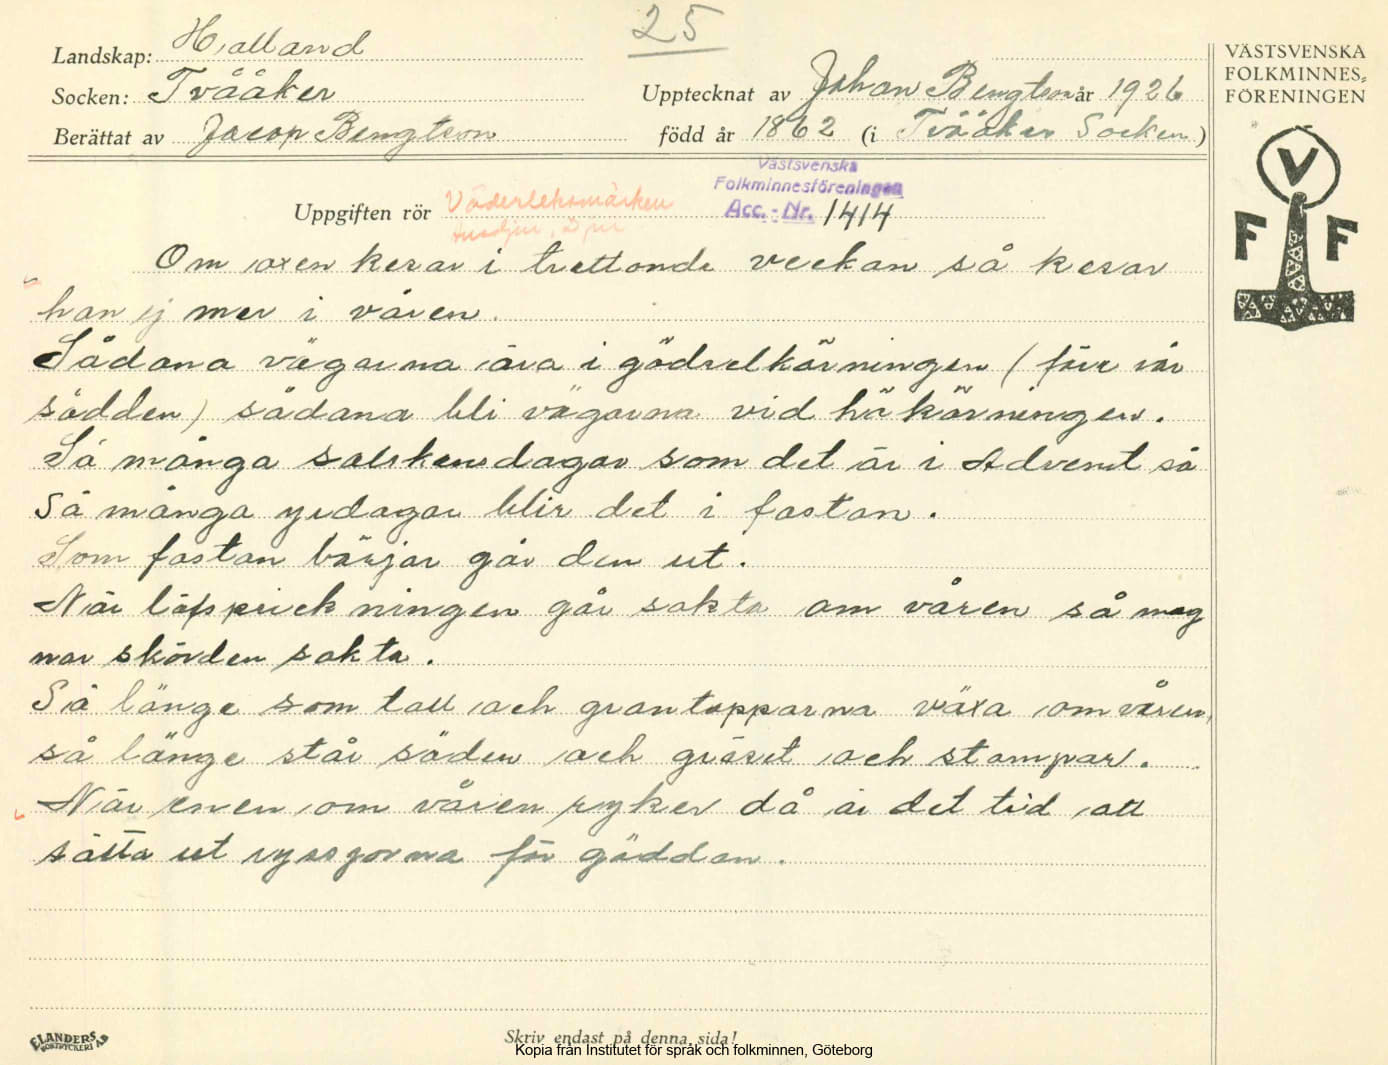 25
Landskap: Halland
Socken: Tvååker
Upptecknat av Johan Bengtson år 1926
Berättat av Jacop Bengtson
född år 1862 (i Tvååker Socken)
VÄSTSVENSKA
FOLKMINNES-
FÖRENINGEN
V
F F
Västsvenska
Folkminnesföreningen
Acc.-Nr. 1414
Uppgiften rör Väderleksmärken
Husdjur, Djur
Om oxen kesar i trettonde veckan så kesar
han ej mer i våren.
Sådana vägarna ära i gödselkörningen (före vår
sådden) sådana bli vägarna vid hökörningen.
Så många solskensdagar som det är i Advent så
Så många yrdagar blir det i fastan.
Som fastan börjar går den ut.
När löfsprickningen går sakta om våren så mog
nar skörden sakta.
Så länge som tall och grantopparna växa om våren,
så länge står säden och gräset och stampar.
När enen om våren ryker då är det tid att
sätta ut ryssjorna för gäddan.
ELANDERS
BOKTRYCKERI AB
Skriv endast på denna sida!
Kopia från Institutet för språk och folkminnen, Göteborg